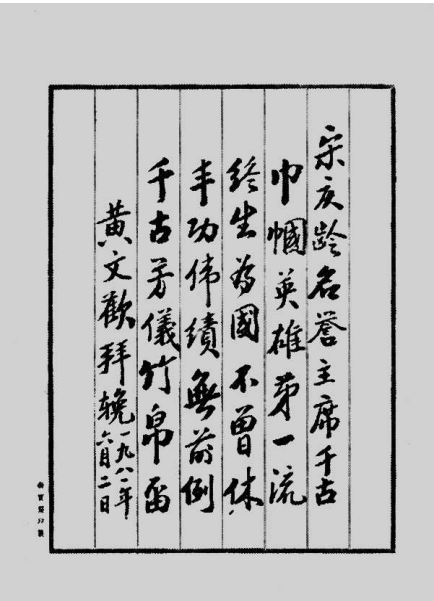 宋庆龄名誉主席千古
巾幗英雄第一流
终生为國不曾休
丰功伟績無前例
千古芳儀竹帛留
黄文歡拜輓一九八一年六月二日